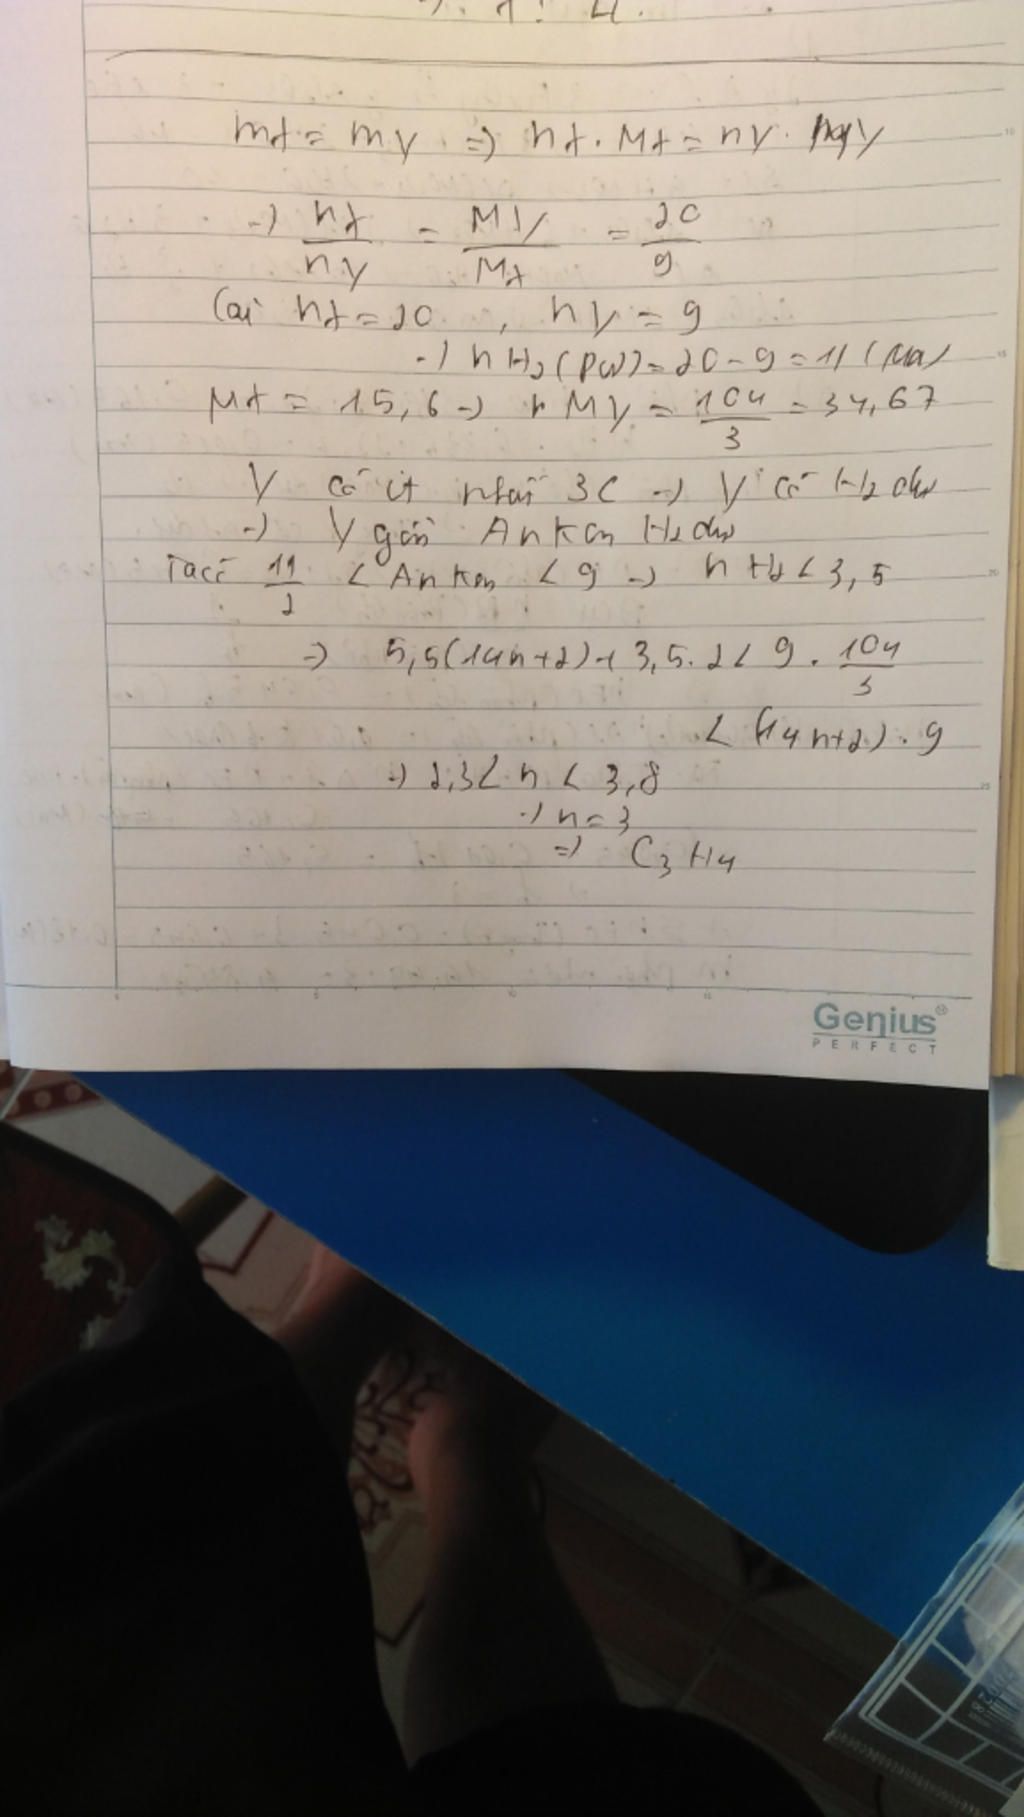 mX = mY => nX . MX = nY . MY
-> nX/nY = MY/MX = 20/9
Coi nX = 20 , nY = 9
-> nH2(PW) = 20 - 9 = 11 (Mol)
MX = 15,6 -> MY = 104/3 = 34,67
Y có ít nhất 3C -> Y có H2 dư
-> Y gồm Ankan H2 dư
Ta có 11/2 < Ankan < 9 -> nH2 < 3,5
=> 5,5(14n+2) + 3,5.2 < 9 . 104/3
< (14n+2) . 9
-> 2,3 < n < 3,8
-> n = 3
=> C3H4
Genius
PERFECT